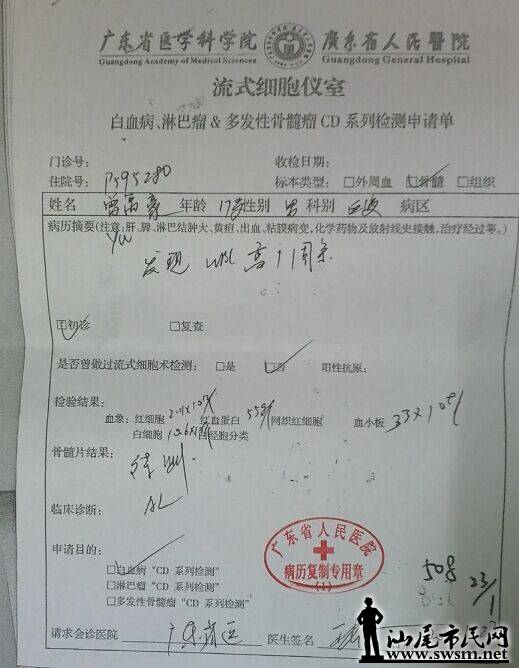 广东省医学科学院 廣東省人民醫院
Guangdong Academy of Medical Sciences Guangdong General Hospital
流式细胞仪室
白血病、淋巴瘤 & 多发性骨髓瘤 CD 系列检测申请单
门诊号： 收检日期：
住院号： P595280 标本类型： □外周血 □骨髓 □组织
姓名 年龄 17岁 性别 男 科别 病区
病历摘要(注意：肝、脾、淋巴结肿大、黄疸、出血、粘膜病变，化学药物及放射线史接触，治疗经过等。)
发现 WBC 高 1周余
□初诊 □复查
是否曾做过流式细胞术检测： □是 □否 阳性抗原：
检验结果：
血象： 红细胞 血红蛋白 55g/L 网织红细胞 血小板 33×10^9/L
白细胞 白经胞分类
骨髓片结果：
待测
临床诊断： AL
申请目的：
□白血病“CD 系列检测”
□淋巴瘤“CD 系列检测”
□多发性骨髓瘤“CD 系列检测”
广东省人民医院
病历复制专用章
(1)
508 23/1
请求会诊医院 广东省医 医生签名
汕尾市民网
www.swsm.net